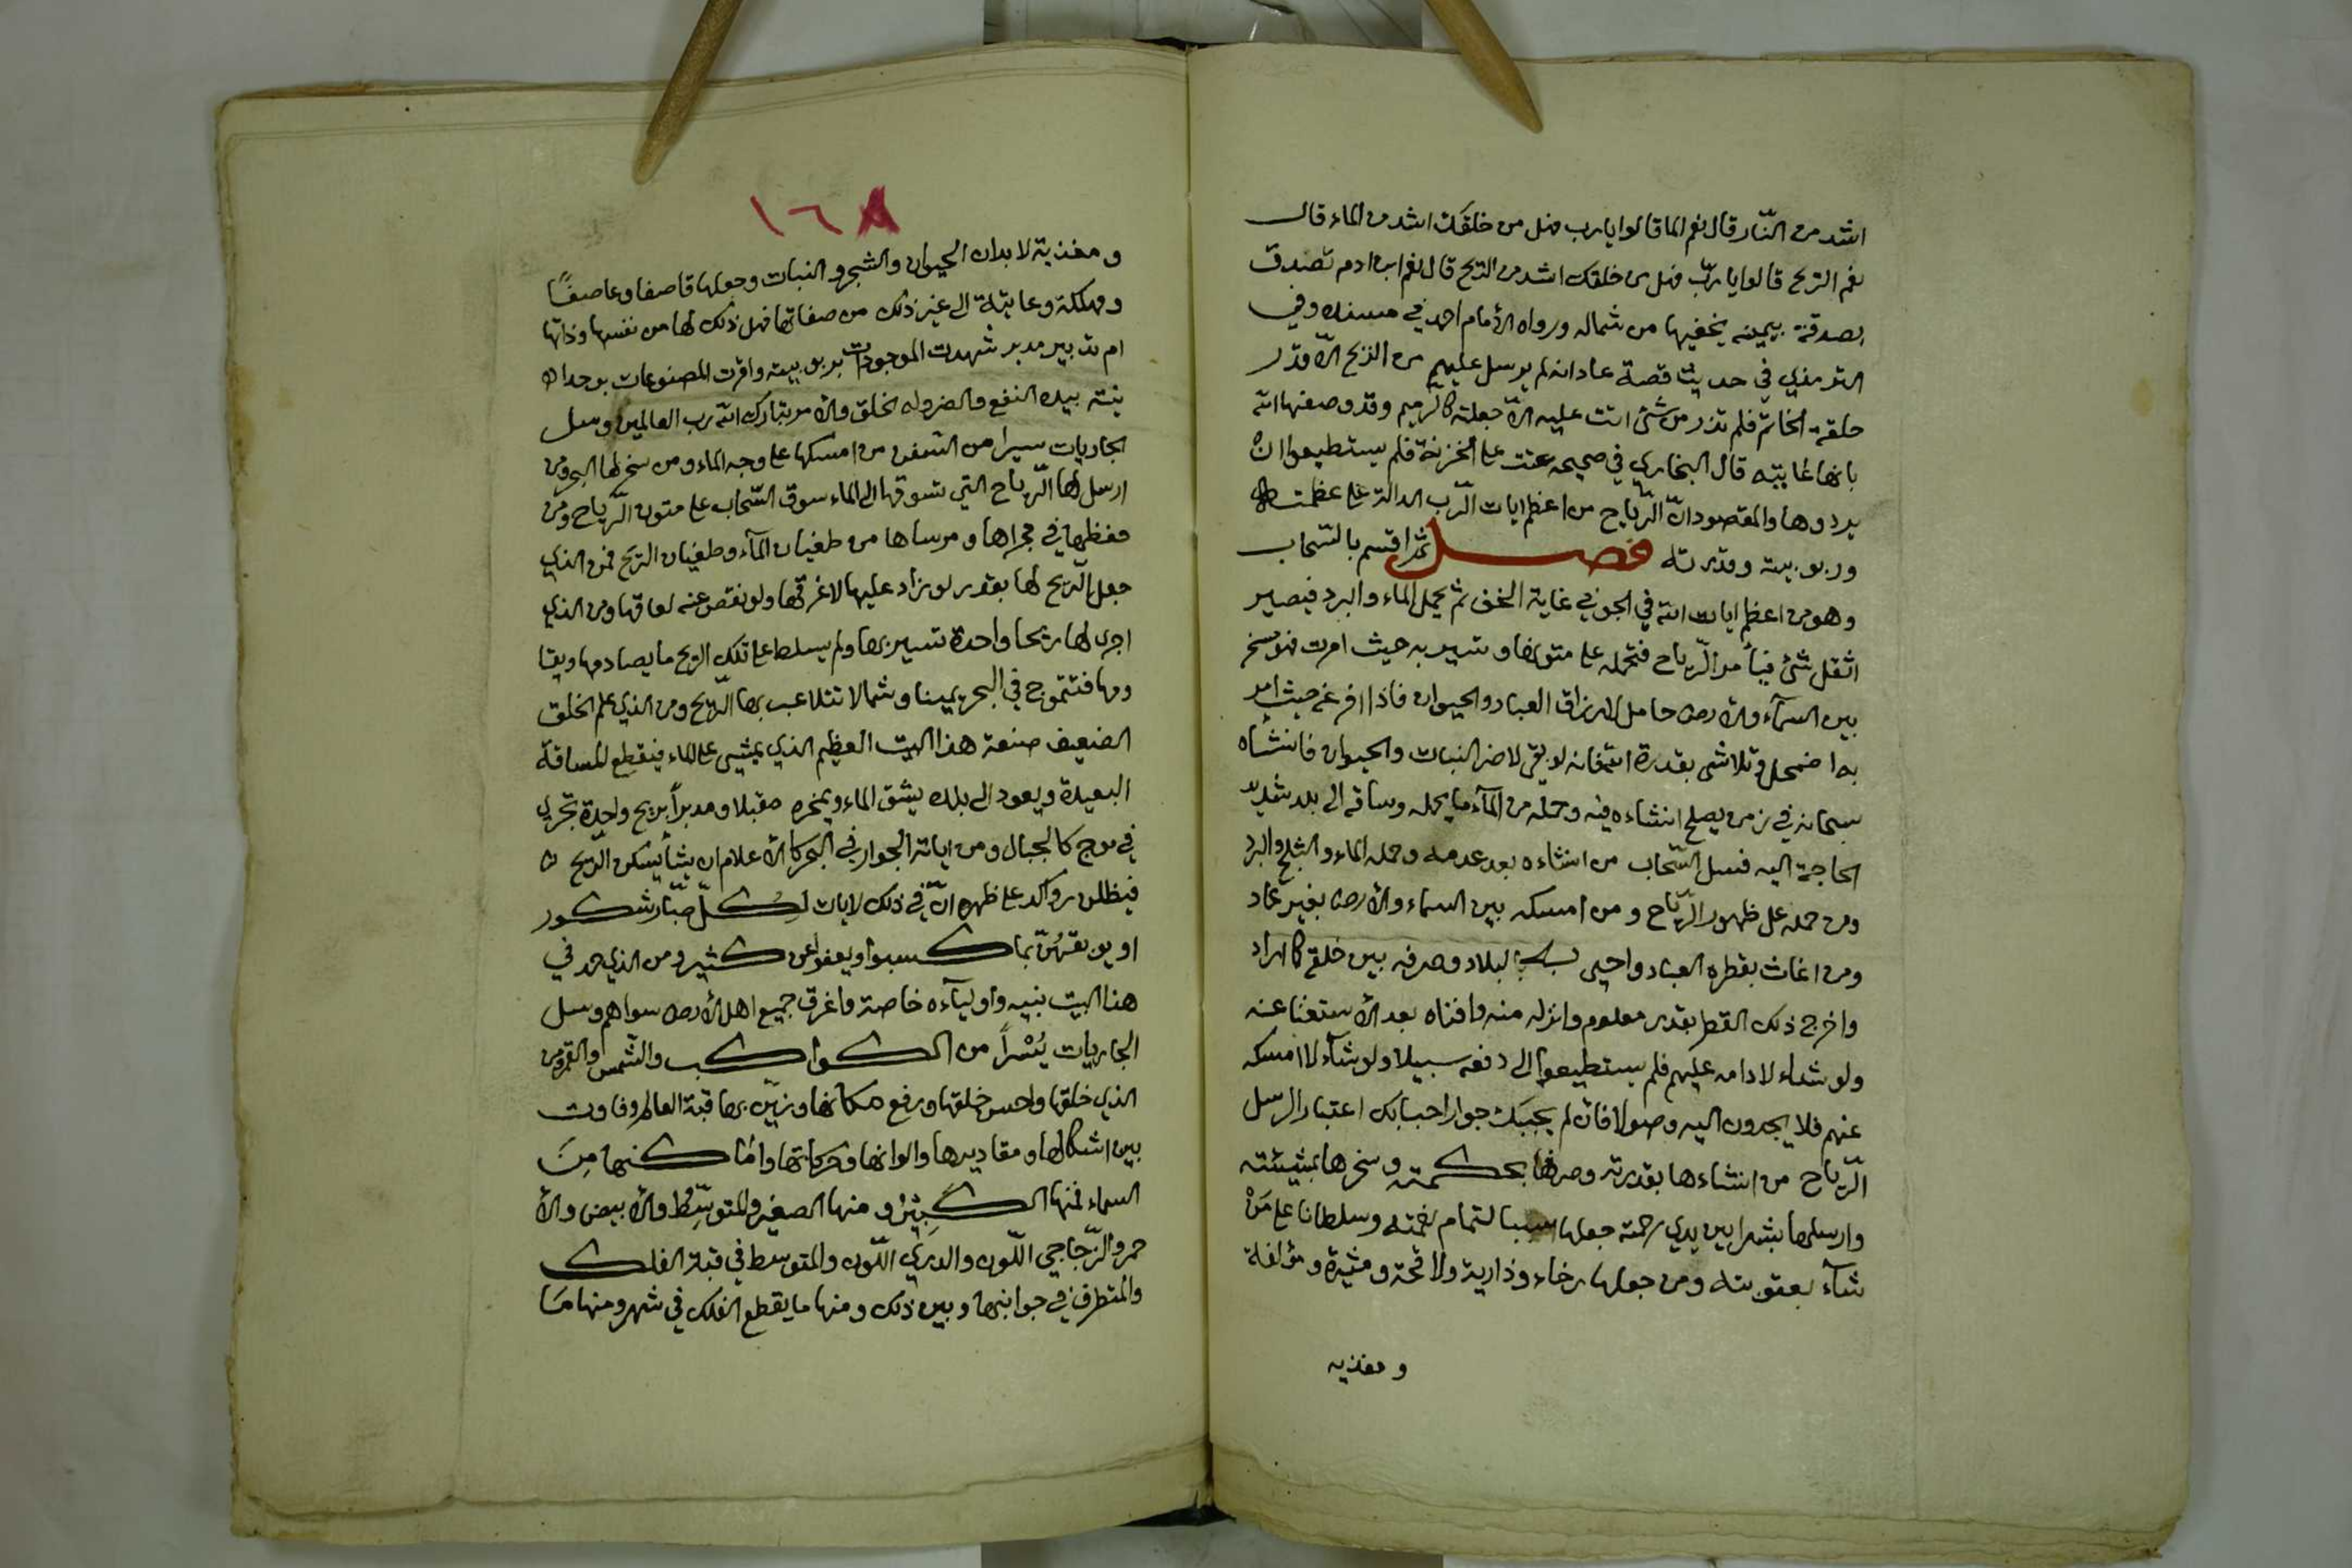 اشد من النّار قال نعم الما قالوا يا رب فهل من خلقك اشد من الماء قال
نعم الريح قالوا يا ربّ فهل من خلقك اشد من الريح قال نعم ابن ادم تصدق
بصدقة بيمينه يخفيها من شماله ورواه الامام احمد في مسنده وفي
الترمذي في حديث قصة عاد انه لم يرسل عليهم من الريح الّا قدر
حلقة الخاتم فلم تذر من شئ اتت عليه الّا جعلته كالرميم وقد وصفها الله
بانها عاتيه قال البخاري في صحيحه عتت على الخزنة فلم يستطيعوا ان
يردوها والمقصود انّ الرّياح من اعظم ايات الرّب الدالة على عظمته
وربوبيته وقدرته فصل ثم اقسم بالسّحاب
وهو من اعظم ايات الله في الجو في غاية الخف ثم يحمل الماء والبرد فيصير
اثقل شئ فيأمر الرّياح فتحمله على متونها وتسير به حيث امرت فهو مسخر
بين السمآء والارض حامل لارزاق العباد والحيوان فاذا افرغه حيث امر
به اضمحل وتلاشى بقدرة الله فانه لو بقي لاضر النبات والحيوان فانشأه
سبحانه في زمن يصلح انشاءه فيه وحمله من المآء ما يحمله وساقه الى بلد شديد
الحاجة اليه فسل السّحاب من انشاءه بعد عدمه وحمله الماء والثلج والبرد
ومن حمله على ظهور الرّياح ومن امسكه بين السماء والارض بغير عماد
ومن اغاث بقطره العباد واحيى به البلاد وصرفه بين خلقه كما اراد
واخرج ذلك القطر بقدر معلوم وانزله منه وافناه بعد الاستغنا عنه
ولو شاء لادامه عليهم فلم يستطيعوا الى دفعه سبيلا ولو شآء لامسكه
عنهم فلا يجدون اليه وصولا فان لم يجبك جوارا اجابك اعتبارا وسل
الرّياح من انشاءها بقدرته وصرفها بحكمته وسخرها بمشيئته
وارسلها بشرا بين يدي رحمته جعلها سببا لتمام نعمته وسلطانا على مَن
شآء بعقوبته ومن جعلها رخاء وذارية ولاقحة ومثيرة ومؤلفة
ومغذيه
١٦٨
ومغذية لابدان الحيوان والشجر والنبات وجعلها قاصفا وعاصفًا
ومهلكة وعاتية الى غير ذلك من صفاتها فهل ذلك لها من نفسها وذاتها
ام تدبير مدبر شهدت الموجودات بربوبيته واقرت المصنوعات بوحدا
نيته بيده النفع والضر وله الخلق والامر تبارك الله رب العالمين وسل
الجاريات يسرا من السّفن من امسكها على وجه الماء ومن سخر لها البحر ومن
ارسل لها الرّياح التي تسوقها الى الماء سوق السّحاب على متون الرّياح ومن
حفظها في مجراها ومرساها من طغيان المآء وطغيان الريح فمن الذي
جعل الرّيح لها بقدر لو زاد عليها لاغرقها ولو نقص عنه لعاقها ومن الذي
اجرى لها ريحا واحدة تسير بها ولم يسلط على تلك الريح ما يصادمها ويقا
ومها فتتموج في البحر يمينا وشمالا تتلاعب بها الرّيح ومن الذي علم الخلق
الضعيف صنعة هذا البيت العظيم الذي يمشي على الماء فيقطع المسافة
البعيدة ويعود الى بلده يشق الماء ويمخره مقبلا ومدبراً بريح واحدة تجري
في موج كالجبال ومن اياته الجوار في البحر كالاعلام ان يشأ يسكن الرّيح
فيظللن رواكد على ظهره انّ في ذلك لايات لِكلّ صبّار شكور
او يوبقهُنّ بما كسبوا ويعفو عن كثير ومن الذي حمل في
هذا البيت نبيه واوليآءه خاصة واغرق جميع اهل الارض سواهم وسل
الجاريات يُسْراً من الكواكب والشّمس والقمر من
الذي خلقها واحسن خلقها ورفع مكانها وزيّن بها قبة العالم وفاوت
بين اشكالها ومقاديرها والوانها وحركاتها واماكنها مِنَ
السماء فمنها الكبِيْر ومنها الصغير والمتوسّط والابيض والا
حمر والزّجاجي اللّون والدري اللّون والمتوسط في قبة الفلك
والمتطرف في جوانبها وبين ذلك ومنها ما يقطع الفلك في شهر ومنها مَا